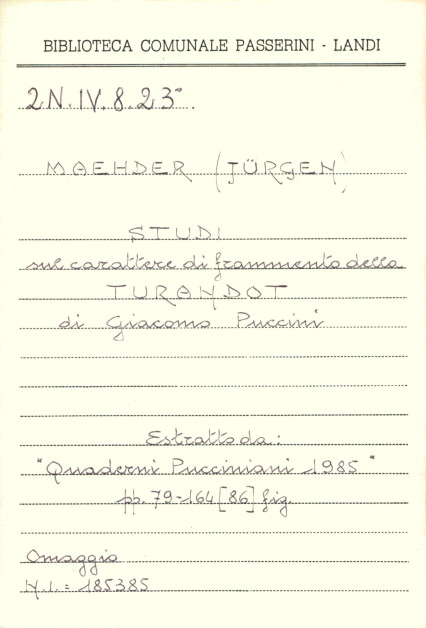 BIBLIOTECA COMUNALE PASSERINI - LANDI
2N.IV.8.23°.
MAEHDER (JÜRGEN)
STUDI
sul carattere di frammento della
TURANDOT
di Giacomo Puccini
Estratto da:
"Quaderni Pucciniani 1985"
pp. 79-164 [86] fig.
Omaggio
N.I. = 185385